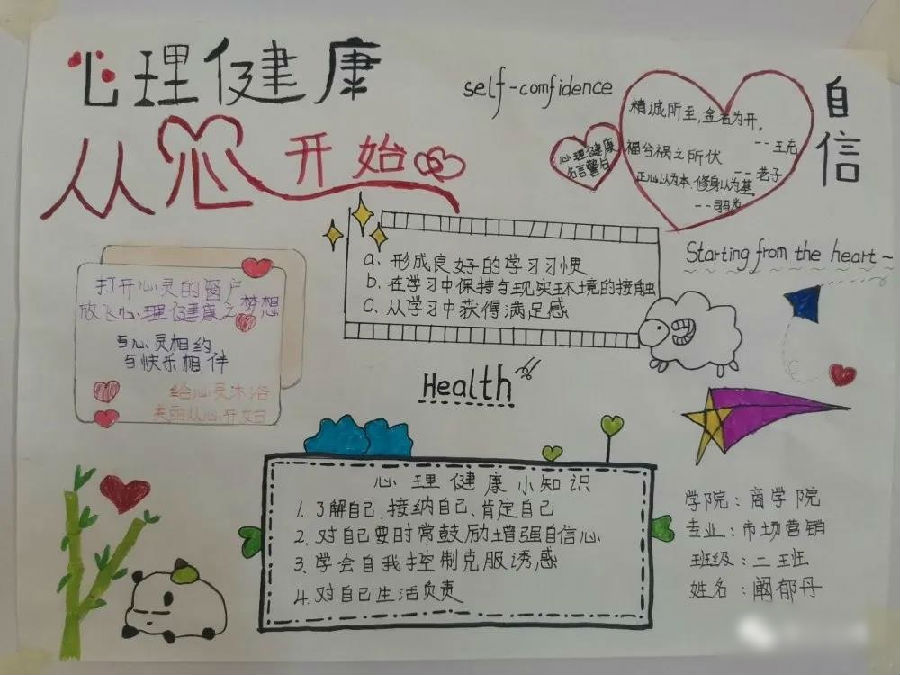 心理健康
从心开始
self-comfidence
自信
心理健康
名言警句
精诚所至,金石为开,
--王充
福兮祸之所伏
--老子
正心以为本,修身以为基
a、形成良好的学习习惯
b、在学习中保持与现实环境的接触
c、从学习中获得满足感
Starting from the heart~
打开心灵的窗户
放飞心理健康之梦想
与心灵相约
与快乐相伴
给心灵沐浴
美丽从心开始
Health
心理健康小知识
1. 了解自己、接纳自己、肯定自己
2. 对自己要时常鼓励增强自信心
3. 学会自我控制克服诱惑
4. 对自己生活负责
学院：商学院
专业：市场营销
班级：二班
姓名：阚郁丹